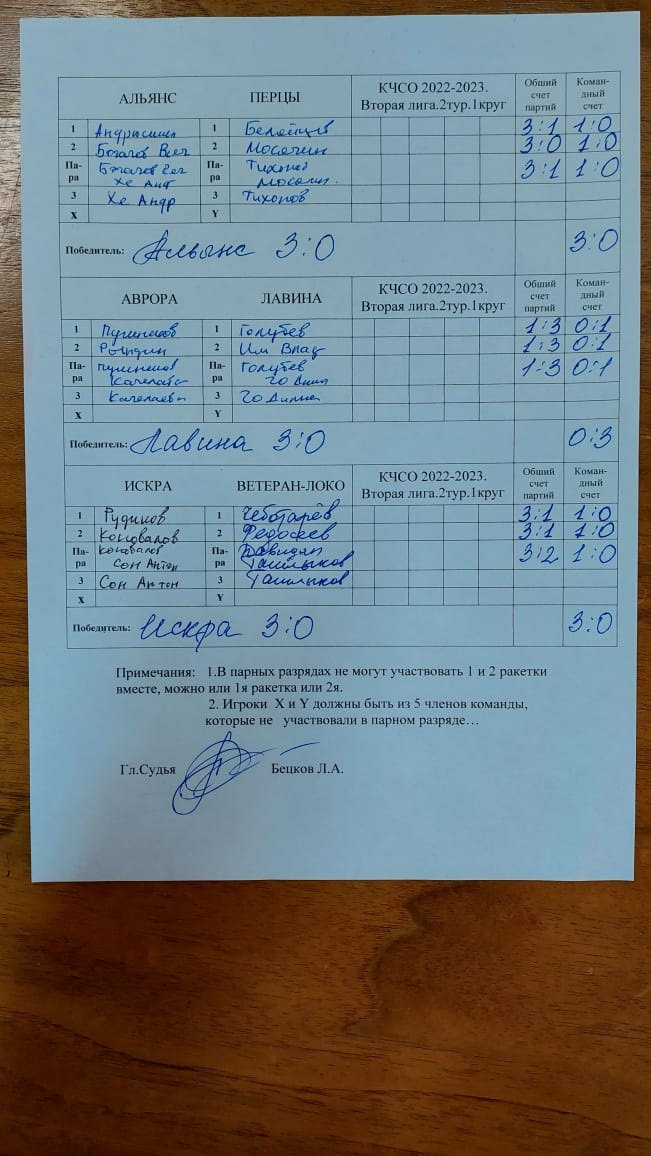 АЛЬЯНС ПЕРЦЫ КЧСО 2022-2023. Вторая лига.2тур.1круг Общий счет партий Коман-дный счет
1 1 3:1 1:0
2 Богачов 2 Мосягин 3:0 1:0
Па-ра Богачов Па-ра Тихонов 3:1 1:0
Хе Анд Мосягин
3 Хе Андр 3 Тихонов
X Y
Победитель: Альянс 3:0 3:0
АВРОРА ЛАВИНА КЧСО 2022-2023. Вторая лига.2тур.1круг Общий счет партий Коман-дный счет
1 1 Голубев 1:3 0:1
2 Рындин 2 Им Влад 1:3 0:1
Па-ра Па-ра Голубев 1:3 0:1
3 3
X Y
Победитель: Лавина 3:0 0:3
ИСКРА ВЕТЕРАН-ЛОКО КЧСО 2022-2023. Вторая лига.2тур.1круг Общий счет партий Коман-дный счет
1 Рудиков 1 Чеботарёв 3:1 1:0
2 Коновалов 2 Федосеев 3:1 1:0
Па-ра Коновалов Па-ра Давидян 3:2 1:0
Сон Антон Ташлыков
3 Сон Антон 3 Ташлыков
X Y
Победитель: Искра 3:0 3:0
Примечания: 1.В парных разрядах не могут участвовать 1 и 2 ракетки
вместе, можно или 1я ракетка или 2я.
2. Игроки X и Y должны быть из 5 членов команды,
которые не участвовали в парном разряде…
Гл.Судья Бецков Л.А.